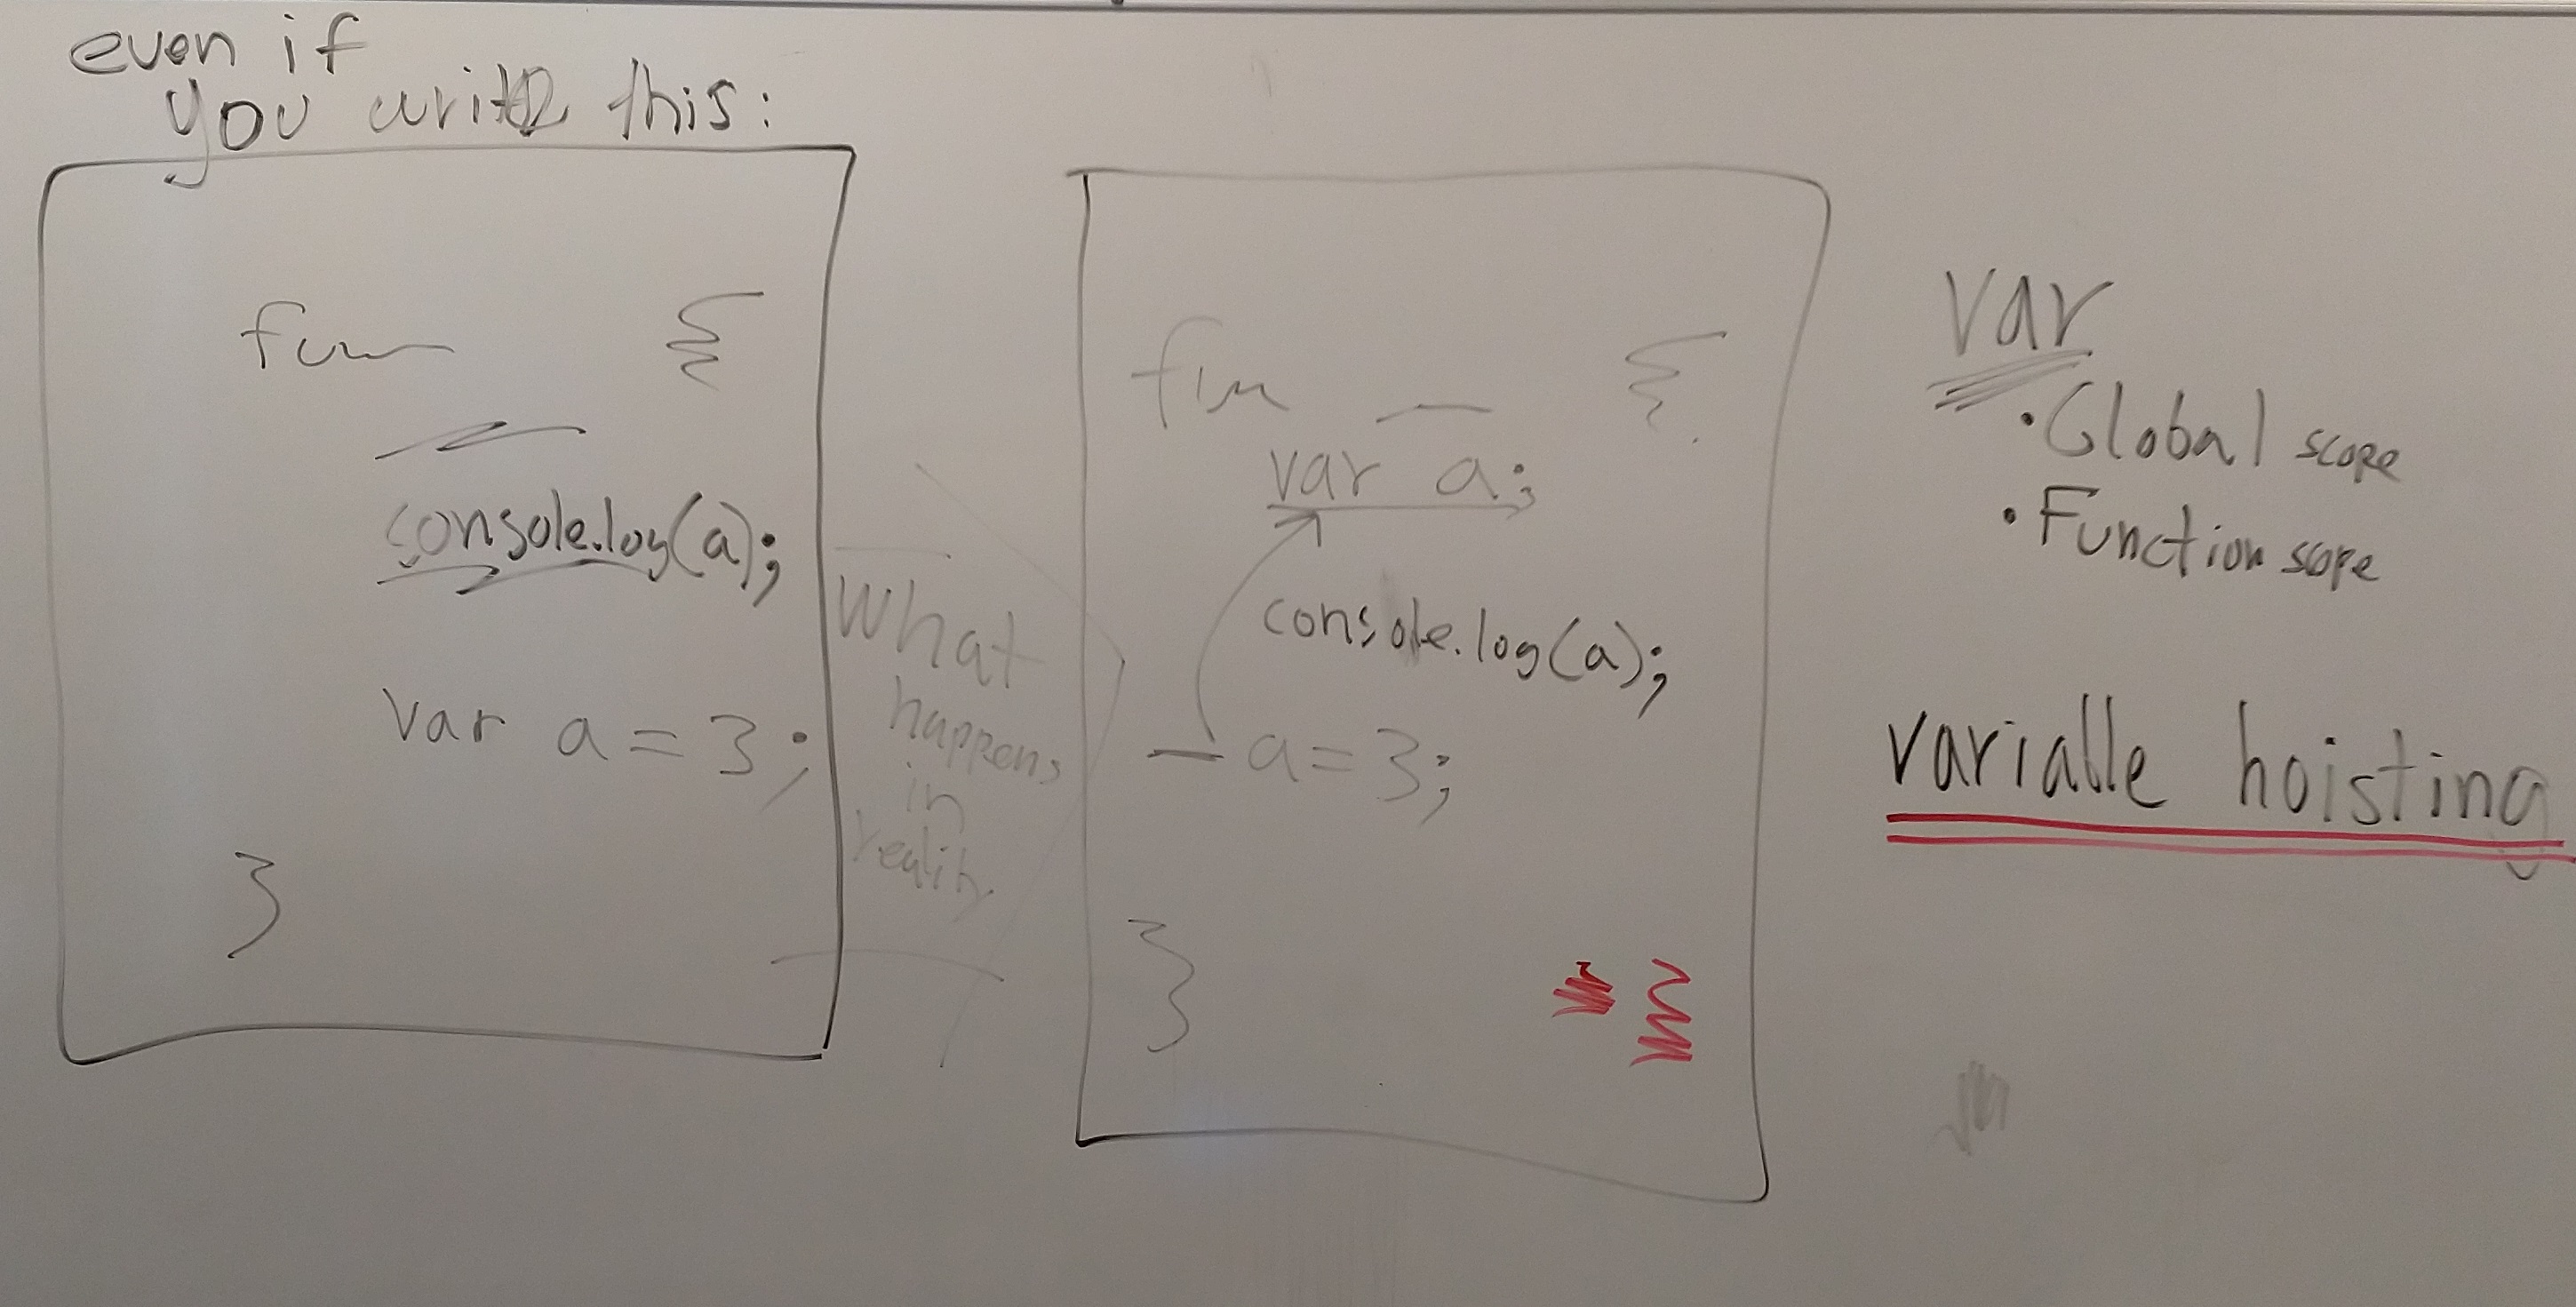 even if
you write this:
fun {
console.log(a);
var a = 3;
}
What
happens
in
reality
fun {
var a;
console.log(a);
a = 3;
}
var
• Global scope
• Function scope
variable hoisting